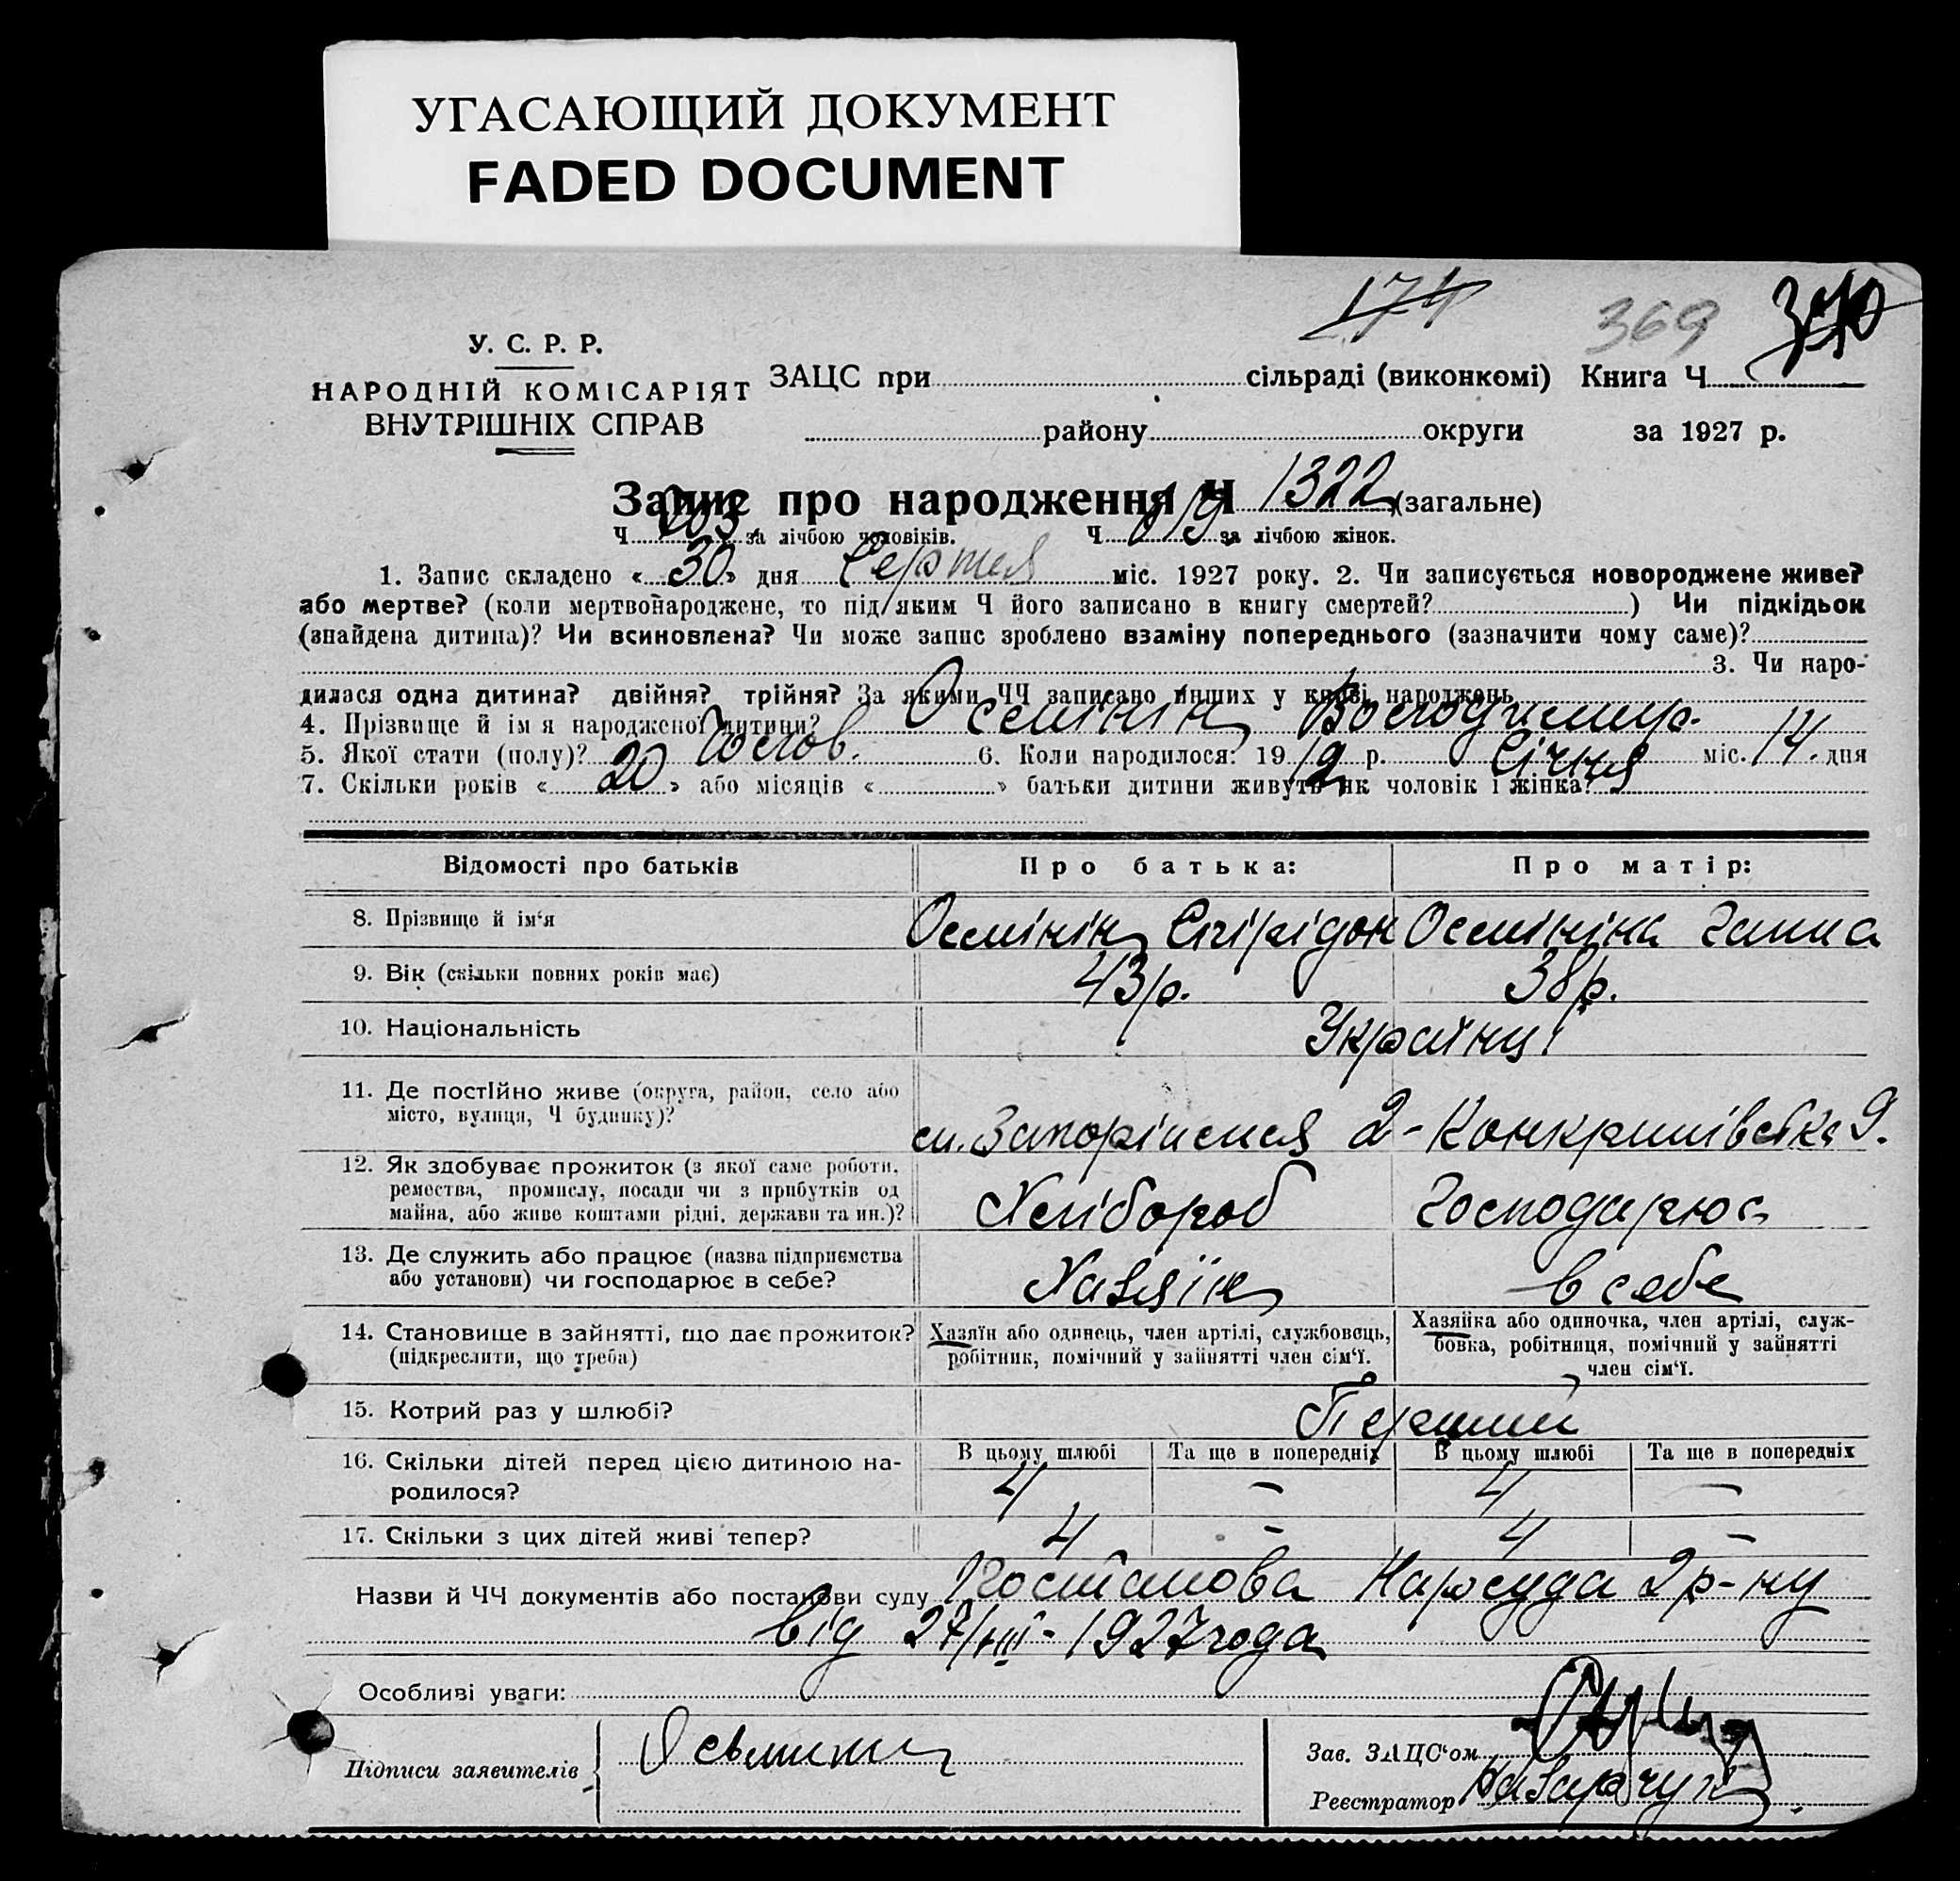 УГАСАЮЩИЙ ДОКУМЕНТ
FADED DOCUMENT
174 369
У. С. Р. Р.
НАРОДНІЙ КОМІСАРІЯТ
ВНУТРІШНІХ СПРАВ
ЗАЦС при сільраді (виконкомі) Книга Ч
району округи за 1927 р.
Запис про народження Ч 1322 (загальне)
Ч 703 за лічбою чоловіків. Ч 619 за лічбою жінок.
1. Запис складено « 30 » дня Серпня міс. 1927 року. 2. Чи записується новороджене живе?
або мертве? (коли мертвонароджене, то під яким Ч його записано в книгу смертей? ) Чи підкідьок
(знайдена дитина)? Чи всиновлена? Чи може запис зроблено взаміну попереднього (зазначити чому саме)?
3. Чи наро-
дилася одна дитина? двійня? трійня? За якими ЧЧ записано инших у книзі народжень
4. Прізвище й ім я народженої дитини? Осьмінін Володимир.
5. Якої стати (полу)? Чолов. 6. Коли народилося? 1912 р. Січня міс. 14. дня
7. Скільки років « 20 » або місяців « » батьки дитини живуть як чоловік і жінка?
Відомості про батьків Про батька: Про матір:
8. Прізвище й ім‘я Осьмінін Спірідон Осьмініна Ганна
9. Вік (скільки повних років має) 43 р. 38 р.
10. Національність Українці
11. Де постійно живе (округа, район, село або
місто, вулиця, Ч будинку)? 2- 9.
12. Як здобуває прожиток (з якої саме роботи,
ремества, промислу, посади чи з прибутків од
майна, або живе коштами рідні, держави та ин.)? Хлібороб Господарює
13. Де служить або працює (назва підприємства
або установи) чи господарює в себе? Хазяїн в себе
14. Становище в зайнятті, що дає прожиток?
(підкреслити, що треба)
Хазяїн або одинець, член артілі, службовець,
робітник, помічний у зайнятті член сім‘ї.
Хазяйка або одиночка, член артілі, служ-
бовка, робітниця, помічний у зайнятті
член сім‘ї.
15. Котрий раз у шлюбі? Перший
В цьому шлюбі Та ще в попередніх В цьому шлюбі Та ще в попередніх
16. Скільки дітей перед цією дитиною на-
родилося? 4 — 4 —
17. Скільки з цих дітей живі тепер? 4 — 4 —
Назви й ЧЧ документів або постанови суду Постанова Нарсуда 2 р-ну
від 27/VIII - 1927 года
Особливі уваги:
Підписи заявителів Осьминин
Зав. ЗАЦС‘ом
Реєстратор